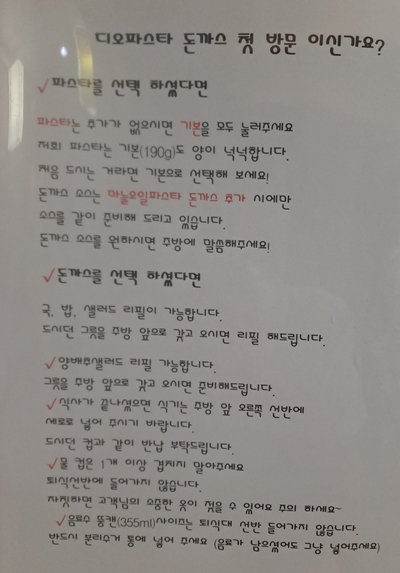 디오파스타 돈까스 첫 방문 이신가요?
✓파스타를 선택 하셨다면
파스타는 추가가 없으시면 기본을 모두 눌러주세요
저희 파스타는 기본(190g)도 양이 넉넉합니다.
처음 드시는 거라면 기본으로 선택해 보세요!
돈까스 소스는 마늘오일파스타 돈까스 추가 시에만
소스를 같이 준비해 드리고 있습니다.
돈까스 소스를 원하시면 주방에 말씀해주세요!
✓돈까스를 선택 하셨다면
국, 밥, 샐러드 리필이 가능합니다.
드시던 그릇을 주방 앞으로 갖고 오시면 리필 해드립니다.
✓양배추샐러드 리필 가능합니다.
그릇을 주방 앞으로 갖고 오시면 준비해드립니다.
✓식사가 끝나셨으면 식기는 주방 앞 오른쪽 선반에
세로로 넣어 주시기 바랍니다.
드시던 컵과 같이 반납 부탁드립니다.
✓물 컵은 1개 이상 겹치지 말아주세요
퇴식선반에 들어가지 않습니다.
자칫하면 고객님의 소중한 옷이 젖을 수 있어요 주의 하세요~
✓음료수 뚱캔(355ml)사이즈는 퇴식대 선반 들어가지 않습니다.
반드시 분리수거 통에 넣어 주세요 (음료가 남으셨어도 그냥 넣어주세요)